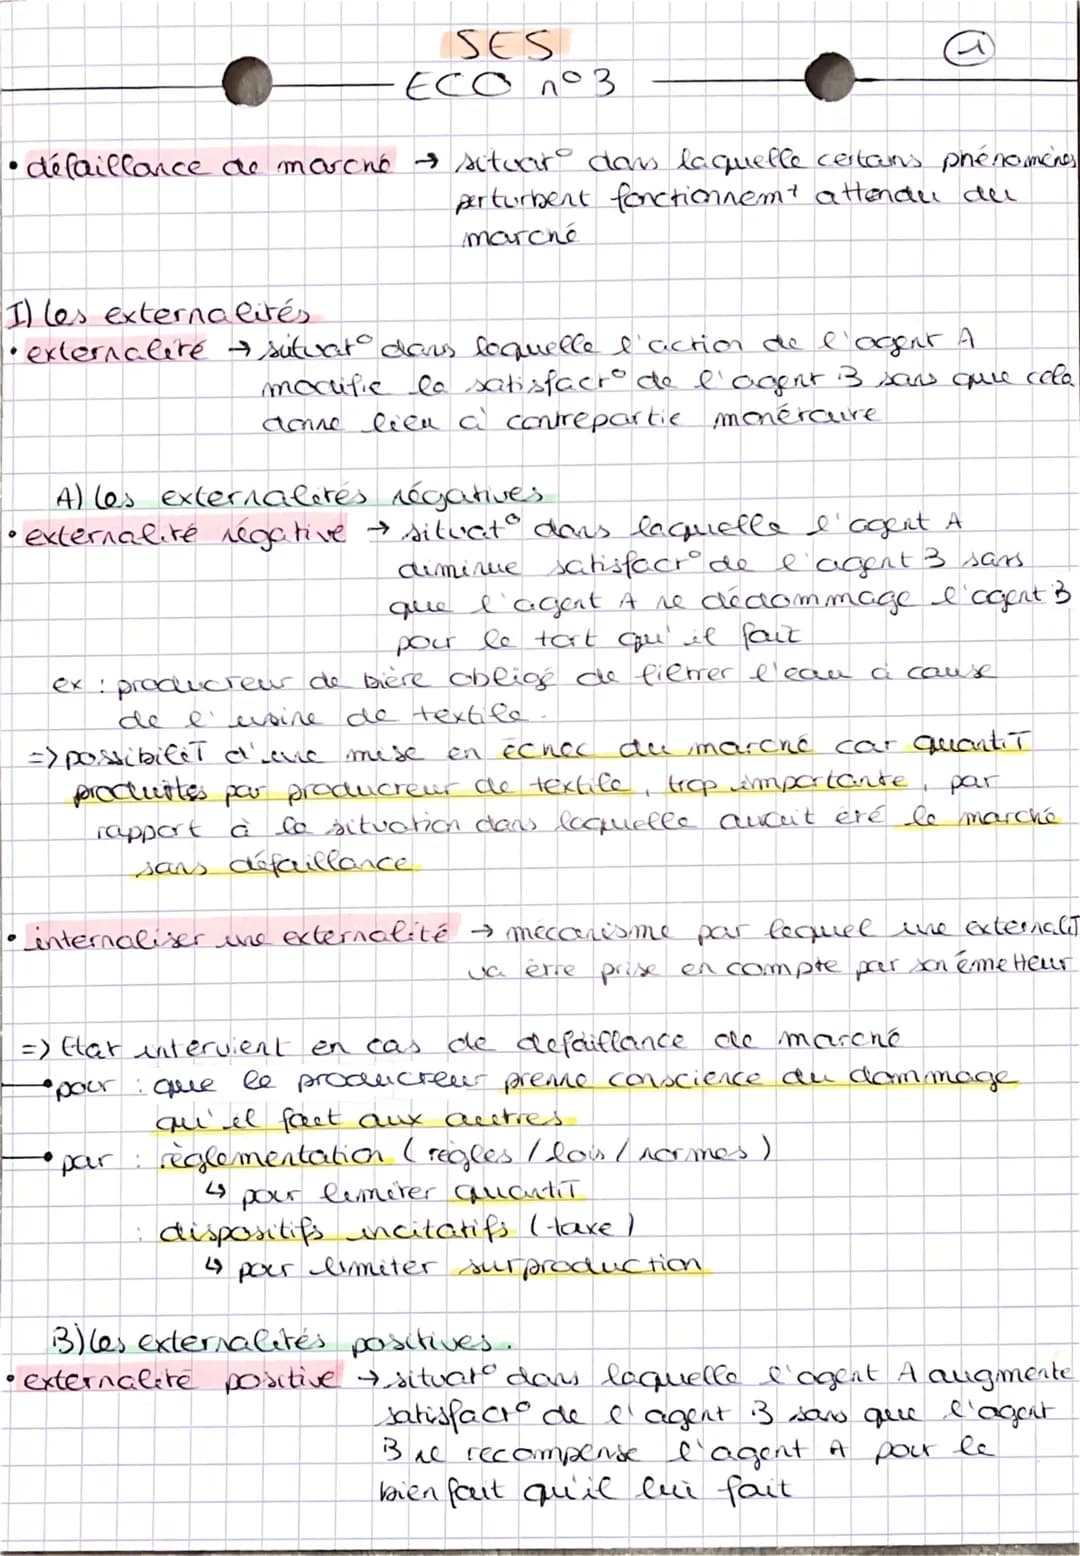 SES
1
ECO n°3
• défaillance de marché → situat° dans laquelle certains phénomènes
perturbent fonctionnemt attendu du
marché
I) Les externalités
• externalité → situat° dans laquelle l'action de l'agent A
modifie la satisfact° de l'agent B sans que cela
donne lieu à contrepartie monétaire
A) Les externalités négatives
• externalité négative → situat° dans laquelle l'agent A
diminue satisfact° de l'agent B sans
que l'agent A ne dédommage l'agent B
pour le tort qu'il fait
ex : producteur de bière obligé de filtrer l'eau à cause
de l'usine de textile.
=> possibiliT d'une mise en échec du marché car quantiT
produites par producteur de textile, trop importante, par
rapport à la situation dans laquelle aurait été le marché
sans défaillance
• internaliser une externalité → mécanisme par lequel une externaliT
va être prise en compte par son émetteur
=> Etat intervient en cas de defaillance de marché
• pour : que le producteur prenne conscience du dommage
qu'il fait aux autres
• par : règlementation (règles / lois / normes)
↳ pour limiter quantiT
: dispositifs incitatifs (taxe)
↳ pour limiter surproduction
B) Les externalités positives.
• externalité positive → situat° dans laquelle l'agent A augmente
satisfact° de l'agent B sans que l'agent
B ne recompense l'agent A pour le
bien fait qu'il lui fait